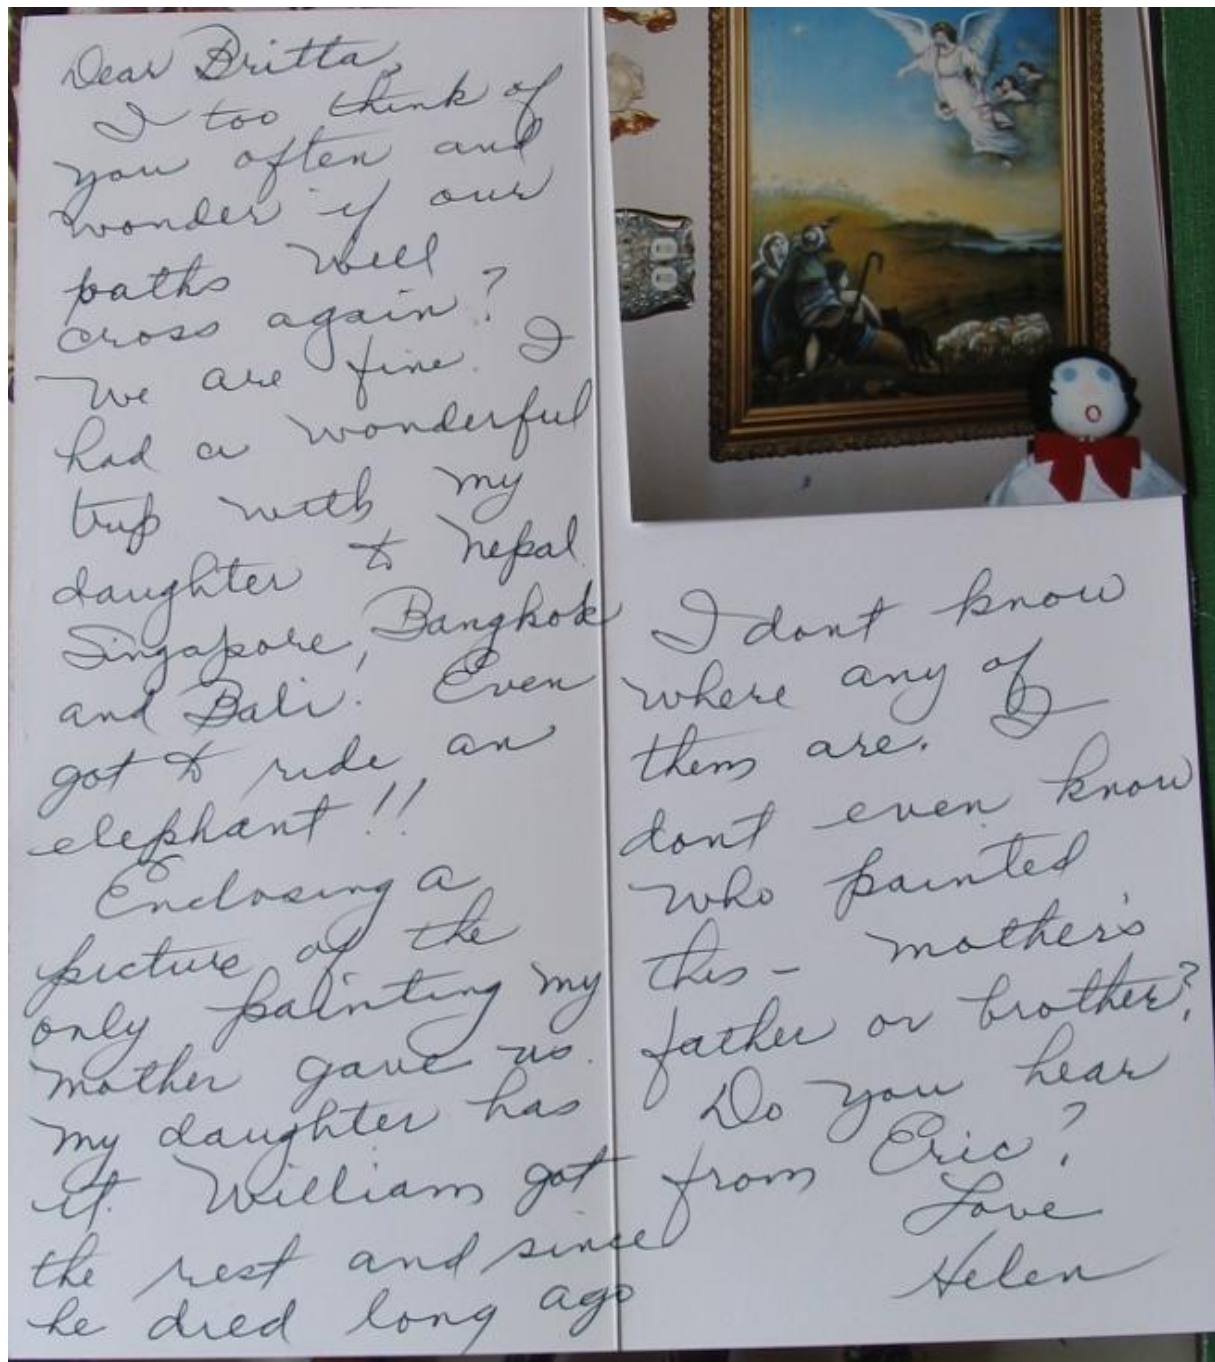 Dear Britta,
I too think of
you often and
wonder if our
paths will
cross again?
We are fine. I
had a wonderful
trip with my
daughter to Nepal
Singapore, Bangkok
and Bali. Even
got to ride an
elephant!!
Enclosing a
picture of the
only painting my
mother gave us.
My daughter has
it. William got
the rest and since
he died long ago
I dont know
where any of
them are. I
dont even know
who painted
this - mother's
father or brother?
Do you hear
from Eric?
Love
Helen